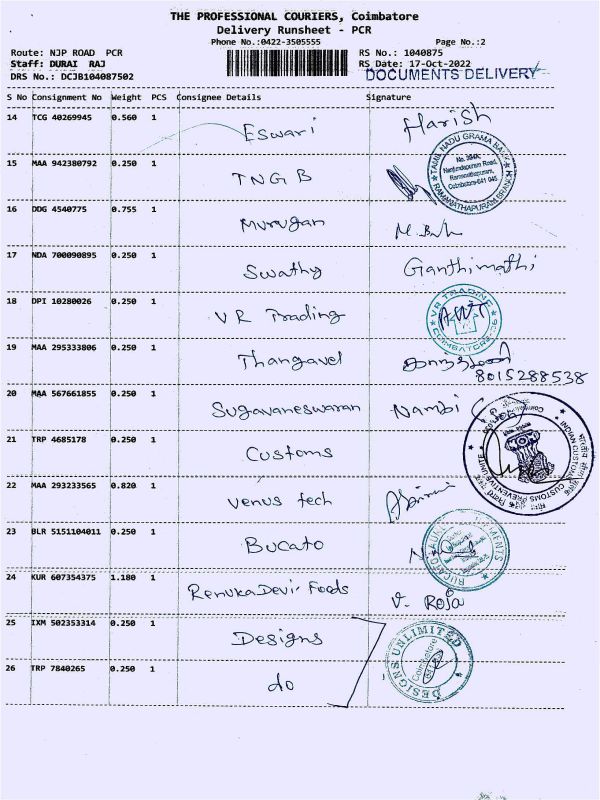 THE PROFESSIONAL COURIERS, Coimbatore
Delivery Runsheet - PCR
Phone No.:0422-3505555 Page No.:2
Route: NJP ROAD PCR RS No.: 1040875
Staff: DURAI RAJ RS Date: 17-Oct-2022
DRS No.: DCJB104087502 DOCUMENTS DELIVERY
S No Consignment No Weight PCS Consignee Details Signature
14 TCG 40269945 0.560 1 Eswari Harish
15 MAA 942380792 0.250 1 TNGB
TAMIL NADU GRAMA BANK
No. 304A,
Nanjundapuram Road,
Ramanathapuram,
Coimbatore-641 045
RAMANATHAPURAM BRANCH
16 DDG 4540775 0.755 1 Murugan
17 NDA 700090895 0.250 1 Swathy Ganthimathi
18 DPI 10280026 0.250 1 VR Trading
VR TRADING
COIMBATORE
19 MAA 295333806 0.250 1 Thangavel
8015288538
20 MAA 567661855 0.250 1 Sugavaneswaran Nambi
21 TRP 4685178 0.250 1 Customs
INDIAN CUSTOMS PREVENTIVE UNIT
22 MAA 293233565 0.820 1 Venus tech
23 BLR 5151104011 0.250 1 Bucato
BUCATO
24 KUR 607354375 1.180 1 Renuka Devi Foods V. Roja
25 IXM 502353314 0.250 1 Designs
DESIGNS UNLIMITED
Coimbatore
26 TRP 7840265 0.250 1 do